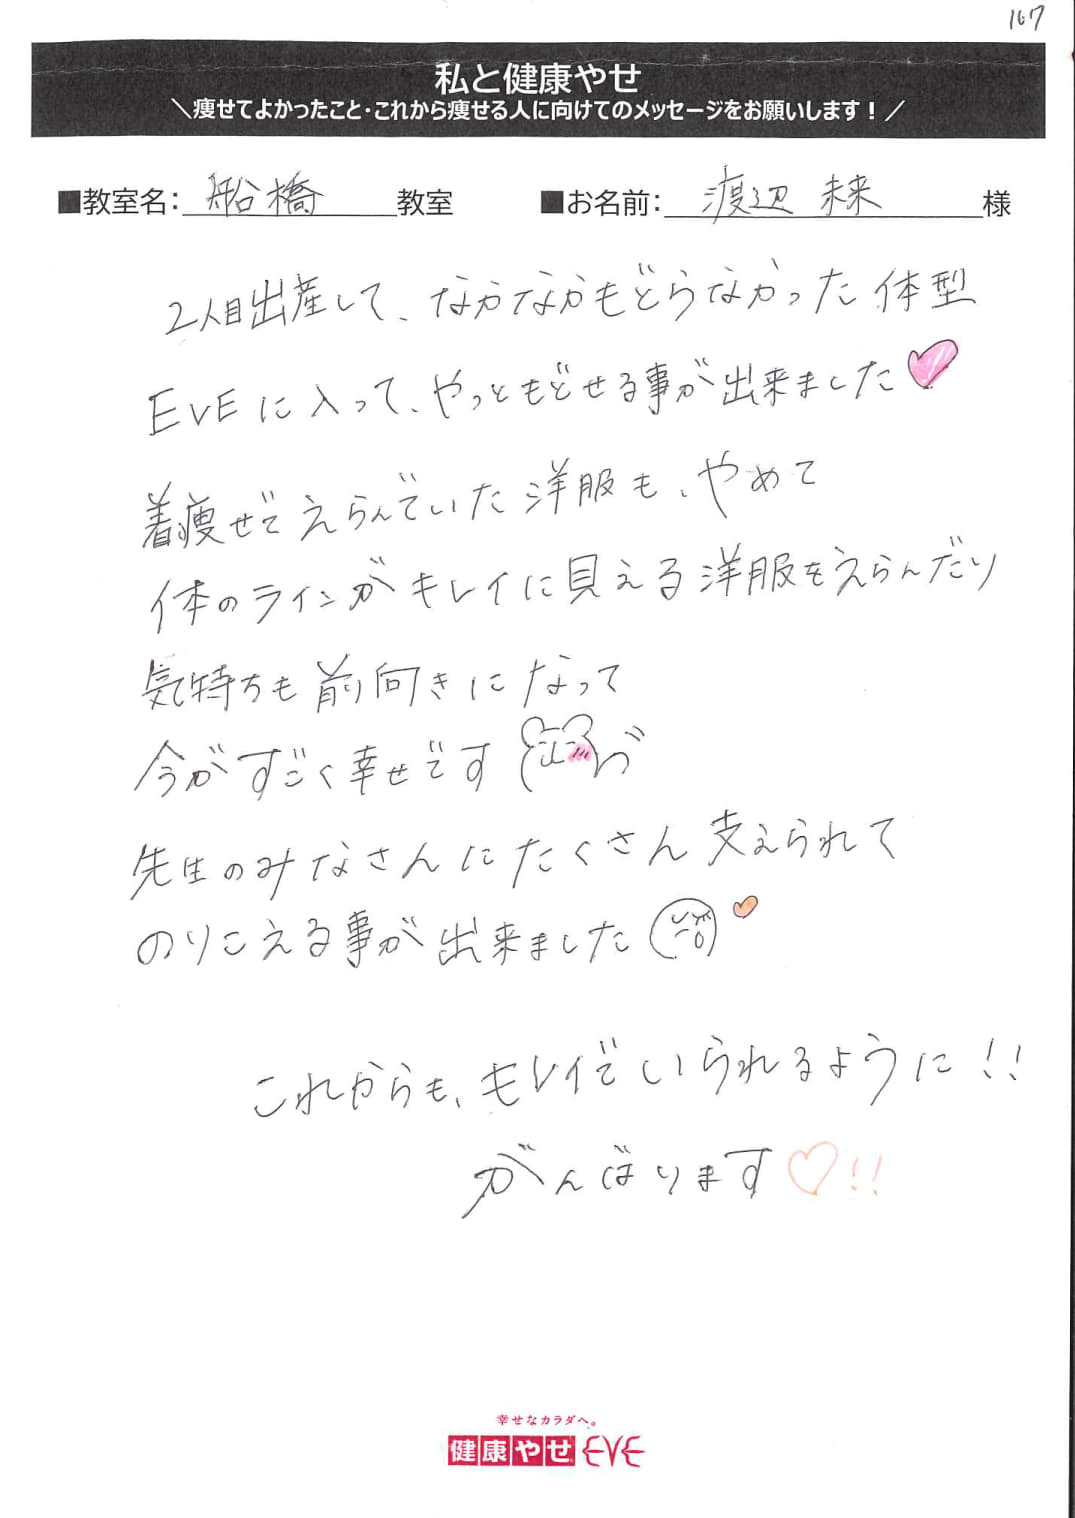 167
私と健康やせ
＼痩せてよかったこと・これから痩せる人に向けてのメッセージをお願いします！／
■教室名：船橋教室 ■お名前：渡辺 未来様
2人目出産して、なかなかもどらなかった体型
EVEに入って、やっともどせる事が出来ました♥
着痩せでえらんでいた洋服も、やめて
体のラインがキレイに見える洋服をえらんだり
気持ちも前向きになって
今がすごく幸せです
先生のみなさんにたくさん支えられて
のりこえる事が出来ました
これからも、キレイでいられるように!!
がんばります♡!!
幸せなカラダへ。
健康やせEVE